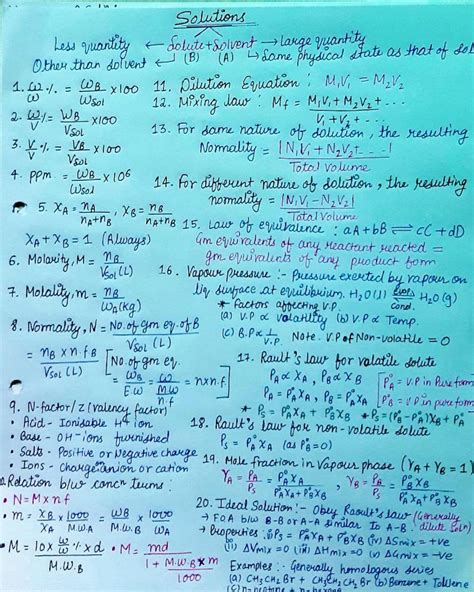 Solutions
Less quantity ← Solute + Solvent → Large quantity
Other than solvent ← (B) (A) → Same physical state as that of sol
1. ω/ω % = W_B/W_Sol × 100
2. ω/V % = W_B/V_Sol × 100
3. V/V % = V_B/V_Sol × 100
4. ppm = W_B/W_Sol × 10⁶
5. X_A = n_A/(n_A+n_B), X_B = n_B/(n_A+n_B)
X_A + X_B = 1 (Always)
6. Molarity, M = n_B/V_Sol (L)
7. Molality, m = n_B/W_A (kg)
8. Normality, N = No. of gm eq. of B/V_Sol (L)
= n_B × n.f_B/V_Sol (L) [No. of gm eq. = W_B/EW = W/(M/n.f) = n × n.f]
9. N-factor/Z (valency factor)
• Acid - Ionisable H⁺ ion
• Base - OH⁻ ions furnished
• Salts - Positive or Negative charge
• Ions - Charge anion or cation
Relation b/w concⁿ terms :
• N = M × n.f
• m = X_B/X_A × 1000/M.W_A = W_B/M.W_B × 1000/W_A
• M = 10 × ω/ω % × d/M.W_B • M = md/(1 + M.W_B × m/1000)
11. Dilution Equation : M₁V₁ = M₂V₂
12. Mixing law : M_f = (M₁V₁ + M₂V₂ + .../V₁ + V₂ ...
13. For same nature of solution, the resulting
Normality = |N₁V₁ + N₂V₂ + ...|/Total Volume
14. For different nature of solution, the resulting
normality = |N₁V₁ − N₂V₂|/Total Volume
15. Law of equivalence : aA + bB ⇌ cC + dD
Gm equivalents of any reactant reacted =
gm equivalents of any product form
16. Vapour pressure :- pressure exerted by vapour on
liq surface at equilibrium. H₂O (l) ⇌ H₂O (g)
Cond.
* Factors affecting V.P.
(a) V.P ∝ Volatility (b) V.P ∝ Temp.
(c) B.P ∝ 1/V.P Note. V.P of Non-volatile = 0
17. Rault's law for volatile solute
P_A ∝ X_A , P_B ∝ X_B
P_A = P°_A X_A , P_B = P°_B X_B
[P°_A = V.P in Pure form
P°_B = V.P in pure form]
* P_S = P°_A X_A + P°_B X_B * P_S = (P°_A − P°_B) X_A + P°_B
18. Rault's law for non-volatile solute
P_S = P°_A X_A (as P°_B = 0)
19. Mole fraction in Vapour phase (Y_A + Y_B = 1)
Y_A = P_A/P_S = P°_A X_A/(P°_A X_A + P°_B X_B) , Y_B = P_B/P_S = P°_B X_B/(P°_A X_A + P°_B X_B)
20. Ideal Solution :- Obey Raoult's law (Generally
→ FOA b/w B-B or A-A similar to A-B. dilute solⁿ)
→ Properties : (i) P_S = P°_A X_A + P°_B X_B (iv) ΔS mix = +ve
(ii) ΔV mix = 0 (iii) ΔH mix = 0 (v) ΔG mix = −ve
Examples :- Generally homologous series
(a) CH₃CH₂Br + CH₃CH₂CH₂Br (b) Benzene + Toluene